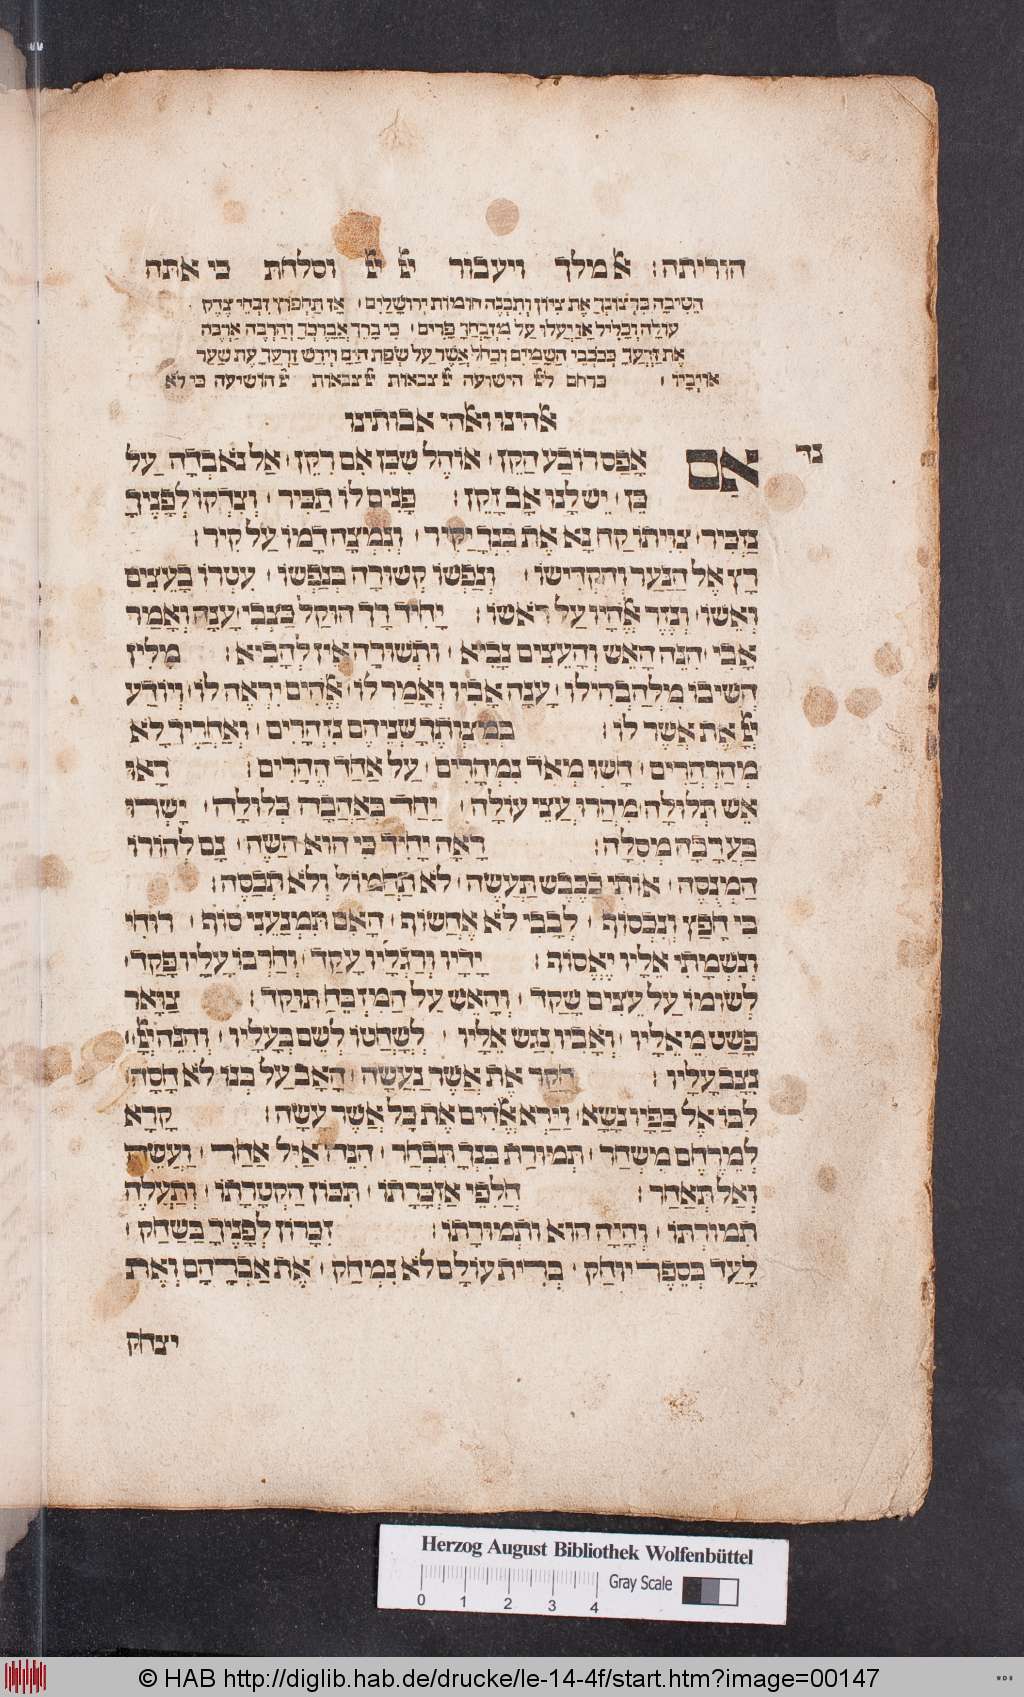 הוריתה: אׄ מלך ויעבור יׄיׄ יׄיׄ וסלחת כי אתה
הֵטִיבָה בִּרְצוֹנְךָ אֶת צִיּוֹן וְתִבְנֶה חוֹמוֹת יְרוּשָׁלַיִם׃ אָז תַּחְפֹּץ זִבְחֵי צֶדֶק
עוֹלָה וְכָלִיל אָז יַעֲלוּ עַל מִזְבַּחֲךָ פָּרִים׃ כִּי בָרֵךְ אֲבָרֶכְךָ וְהַרְבָּה אַרְבֶּה
אֶת זַרְעֲךָ כְּכוֹכְבֵי הַשָּׁמַיִם וְכַחוֹל אֲשֶׁר עַל שְׂפַת הַיָּם וְיִרַשׁ זַרְעֲךָ אֶת שַׁעַר
אוֹיְבָיו׃ ברחם לײׄ הישועה ײׄ צבאות ײׄ צבאות ײׄ הושיעה כי לא
אׄהינו ואׄהי אבותינו
נד
אִם אָפֵס רוֹבַע הַקֵּן אוֹהֶל שִׁכֵּן אִם רִקֵּן אַל נֹאבְדָה עַל
כֵּן יֵשׁ לָנוּ אָב זָקֵן׃ פָּנִים לוֹ תַכִּיר וְצִדְקוֹ לְפָנֶיךָ
נַזְכִּיר צִוִּיתוֹ קַח נָא אֶת בִּנְךָ יַקִּיר וְנִמְצָה דָמוֹ עַל קִיר׃
רָץ אֶל הַנַּעַר וְהִקְדִּישׁוֹ וְנַפְשׁוֹ קְשׁוּרָה בְּנַפְשׁוֹ עִטְּרוֹ בָּעֵצִים
וְאִשּׁוֹ וְנֵזֶר אֱׄהָיו עַל רֹאשׁוֹ׃ יָחִיד רַךְ הוּקַל כַּצְּבִי עָנָה וְאָמַר
אָבִי הִנֵּה הָאֵשׁ וְהָעֵצִים נָבִיא וּתְשׁוּרָה אֵין לְהָבִיא׃ מִלִּין
הֱשִׁיבוֹ מִלְּהַבְהִילוֹ עָנָה אָבִיו וְאָמַר לוֹ אֱׄהִים יִרְאֶה לוֹ וְיוֹדַע
ײׄ אֶת אֲשֶׁר לוֹ׃ בְּמִצְוֹתֶךָ שְׁנֵיהֶם נִזְהָרִים וְאַחֲרֶיךָ לֹא
מְהַרְהֲרִים חָשׁוּ מְאֹד נִמְהָרִים עַל אַחַד הֶהָרִים׃ רָאוּ
אֵשׁ תְּלוּלָה מִהֲרוּ עֲצֵי עוֹלָה יַחַד בְּאַהֲבָה כְלוּלָה יַשְּׁרוּ
בָּעֲרָבָה מְסִלָּה׃ רָאָה יָחִיד כִּי הוּא הַשֶּׂה נָם לְהוֹרוֹ
הַמְנֻסֶּה אוֹתִי כְּכֶבֶשׂ תַּעֲשֶׂה לֹא תַחְמוֹל וְלֹא תְכַסֶּה׃
בִּי חָפַץ וְנִכְסוֹף לְבָבִי לֹא אֶחְשׂוֹף הַאִם תִּמְנָעֵנִי סוֹף רוּחִי
וְנִשְׁמָתִי אֵלָיו יֶאֱסוֹף׃ יָדָיו וְרַגְלָיו עָקַד וְחַרְבּוֹ עָלָיו פָּקַד
לְשׂוּמוֹ עַל עֵצִים שָׁקַד וְהָאֵשׁ עַל הַמִּזְבֵּחַ תּוּקַד׃ צַוָּאר
פָּשַׁט מֵאֵלָיו וְאָבִיו נִגַּשׁ אֵלָיו לְשָׁחֲטוֹ לְשֵׁם בְּעָלָיו וְהִנֵּה ײׄ
נִצָּב עָלָיו׃ חֲקֹר אֶת אֲשֶׁר נַעֲשָׂה הָאָב עַל בְּנוֹ לֹא חָסָה
לִבּוֹ אֶל כַּפָּיו נָשָׂא וַיַּרְא אֱׄהִים אֶת כָּל אֲשֶׁר עָשָׂה׃ קָרָא
לִמְרֻחָם מִשַּׁחַר תְּמוּרַת בִּנְךָ תִּבְחַר הִנֵּה אַיִל אַחַר וַעֲשֵׂה
וְאַל תְּאַחַר׃ חִלּוּפֵי אַזְכָּרָתוֹ תִּכּוֹן הַקְטָרָתוֹ וְתַעֲלֶה
תִּמּוּרָתוֹ וְהָיָה הוּא וּתְמוּרָתוֹ׃ זִכָּרוֹן לְפָנֶיךָ בַּשַּׁחַק
לָעַד בְּסֵפֶר יוּחַק בְּרִית עוֹלָם לֹא נִמְחַק אֶת אַבְרָהָם וְאֶת
יצחק
Herzog August Bibliothek Wolfenbüttel
Gray Scale
0 1 2 3 4
© HAB http://diglib.hab.de/drucke/le-14-4f/start.htm?image=00147